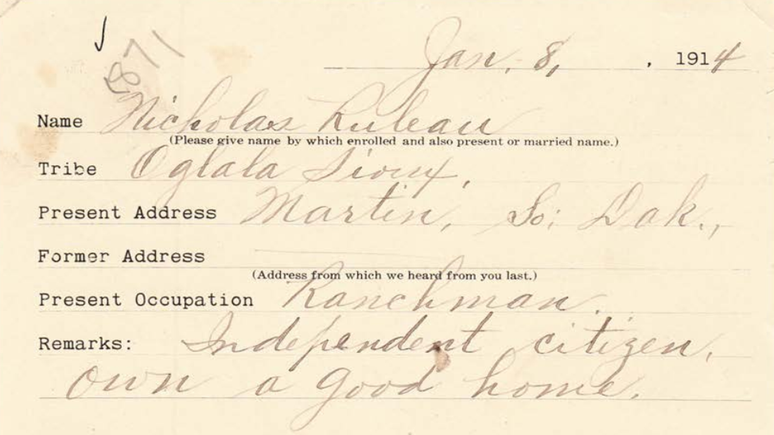 871
Jan. 8, , 1914
Name Nicholas Ruleau
(Please give name by which enrolled and also present or married name.)
Tribe Oglala Sioux.
Present Address Martin, So: Dak.,
Former Address
(Address from which we heard from you last.)
Present Occupation Ranchman.
Remarks: Independent citizen.
own a good home.